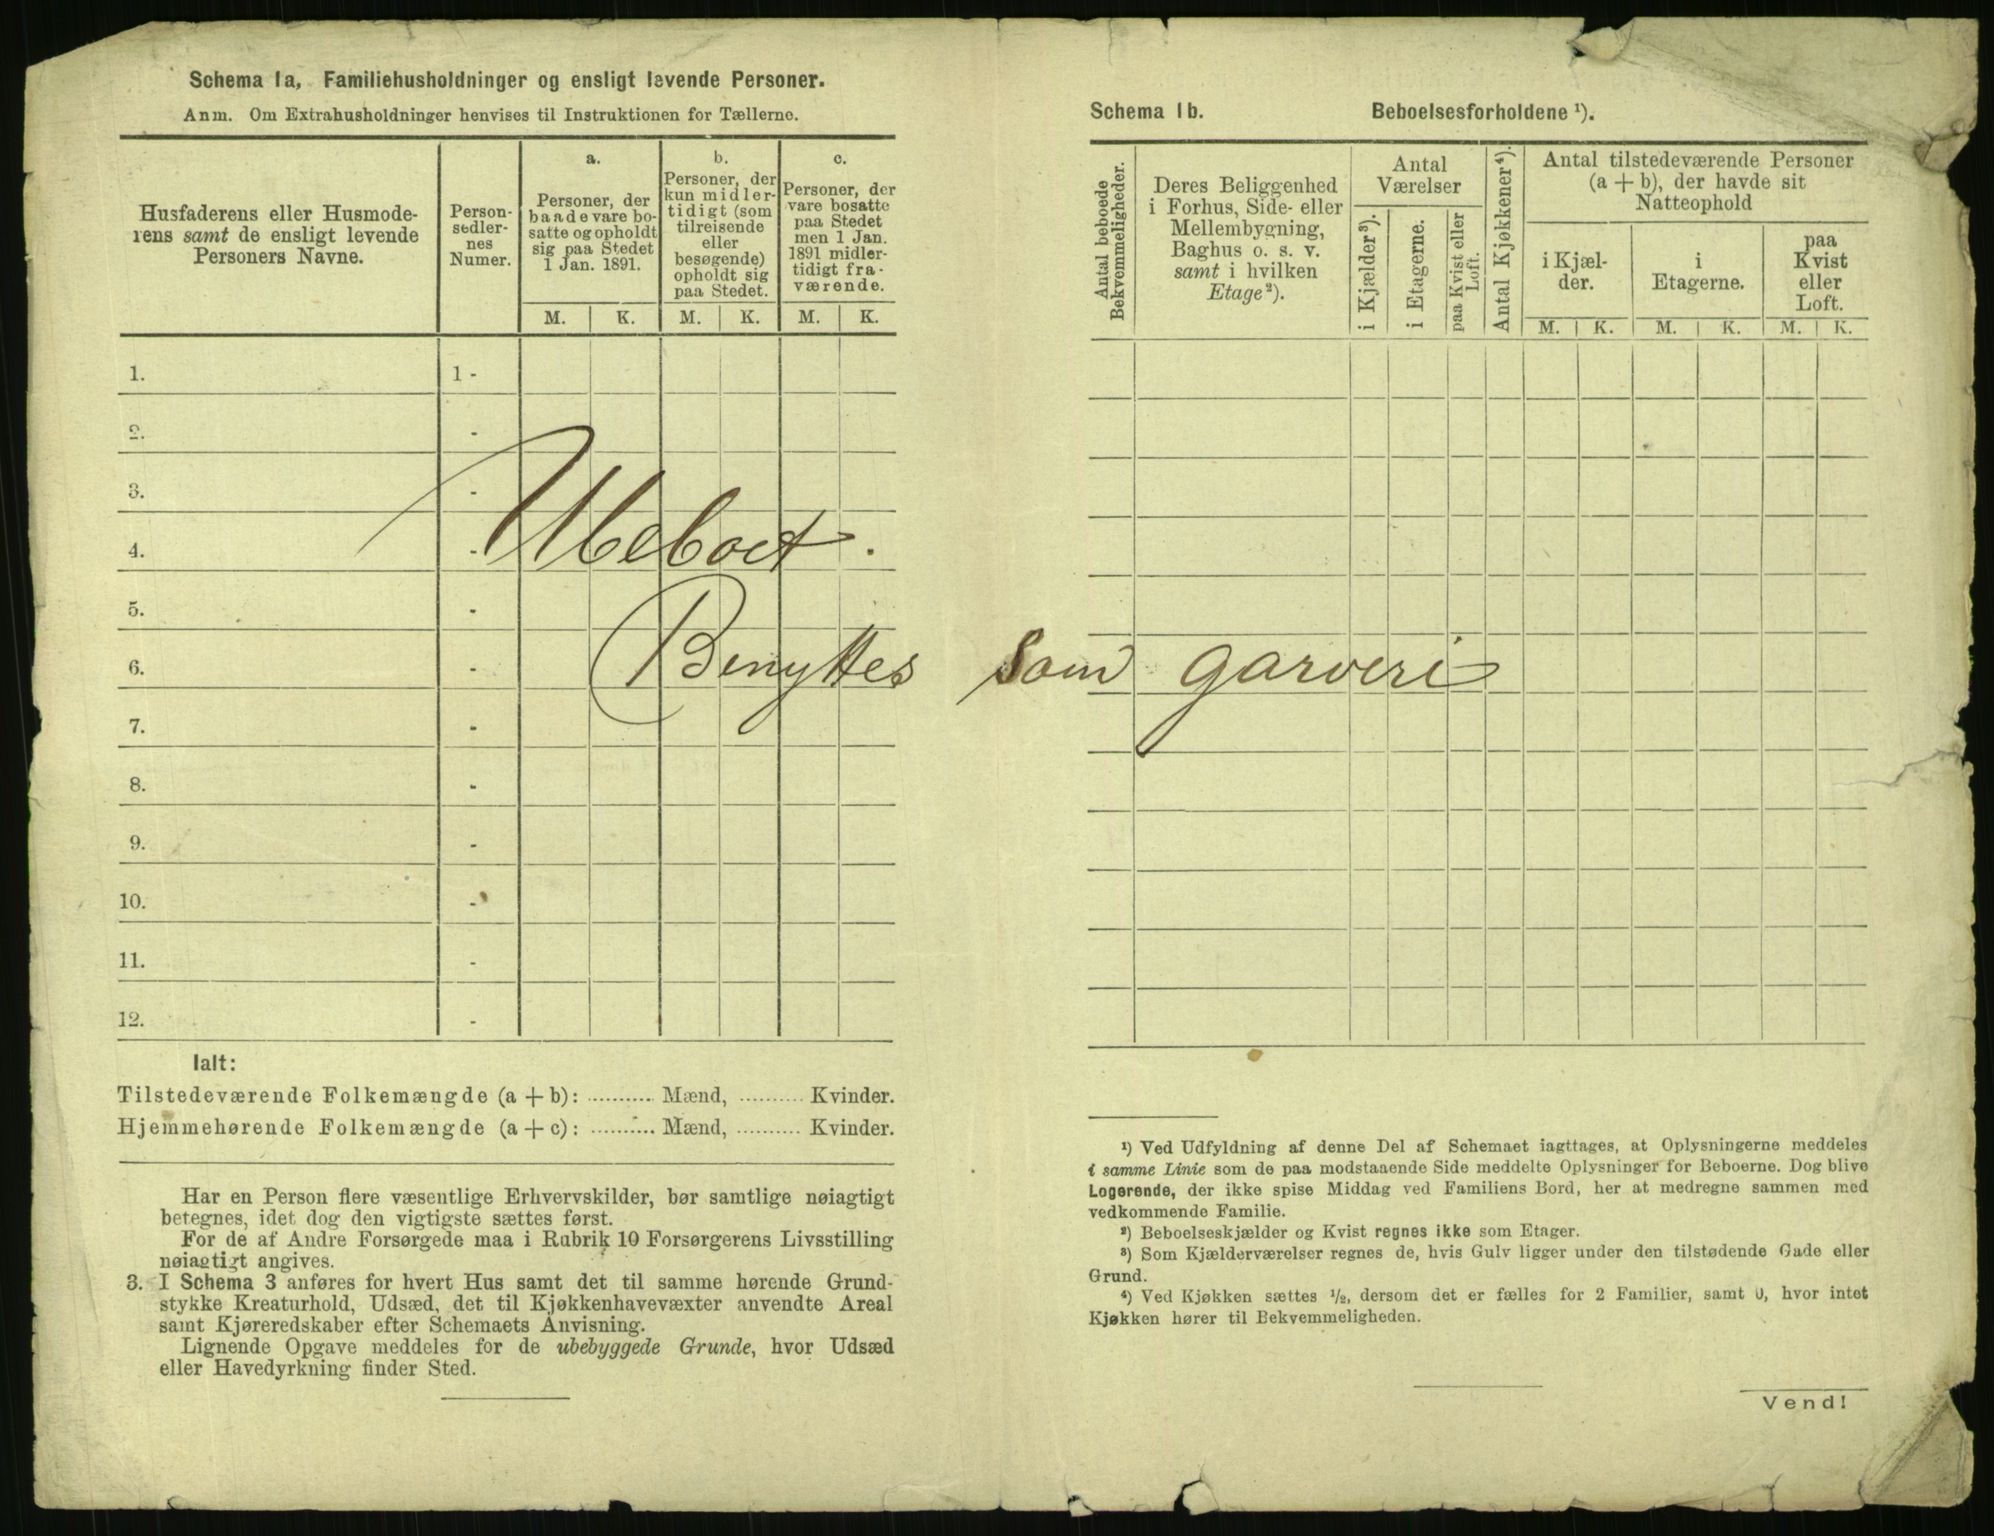 Schema 1a, Familiehusholdninger og ensligt levende Personer.
Anm. Om Extrahusholdninger henvises til Instruktionen for Tællerne.
Husfaderens eller Husmode-
rens samt de ensligt levende
Personers Navne.
Person-
sedler-
nes
Numer.
a.
Personer, der
baade vare bo-
satte og opholdt
sig paa Stedet
1 Jan. 1891.
b.
Personer, der
kun midler-
tidigt (som
tilreisende
eller
besøgende)
opholdt sig
paa Stedet.
c.
Personer, der
vare bosatte
paa Stedet
men 1 Jan.
1891 midler-
tidigt fra-
værende.
M. K. M. K. M. K.
1. 1 -
2. -
3. -
4. -
5. -
6. -
7. -
8. -
9. -
10. -
11. -
12. -
Ubeboet.
Benyttes som garveri
Ialt:
Tilstedeværende Folkemængde (a + b): .......... Mænd, .......... Kvinder.
Hjemmehørende Folkemængde (a + c): .......... Mænd, .......... Kvinder.
Har en Person flere væsentlige Erhvervskilder, bør samtlige nøiagtigt
betegnes, idet dog den vigtigste sættes først.
For de af Andre Forsørgede maa i Rubrik 10 Forsørgerens Livsstilling
nøiagtigt angives.
3. I Schema 3 anføres for hvert Hus samt det til samme hørende Grund-
stykke Kreaturhold, Udsæd, det til Kjøkkenhavevæxter anvendte Areal
samt Kjøreredskaber efter Schemaets Anvisning.
Lignende Opgave meddeles for de ubebyggede Grunde, hvor Udsæd
eller Havedyrkning finder Sted.
Schema 1b. Beboelsesforholdene ¹).
Antal beboede
Bekvemmeligheder.
Deres Beliggenhed
i Forhus, Side- eller
Mellembygning,
Baghus o. s. v.
samt i hvilken
Etage²).
Antal
Værelser
i Kjælder³).
i Etagerne.
paa Kvist eller
Loft.
Antal Kjøkkener⁴).
Antal tilstedeværende Personer
(a + b), der havde sit
Natteophold
i Kjæl-
der.
i
Etagerne.
paa
Kvist
eller
Loft.
M. K. M. K. M. K.
¹) Ved Udfyldning af denne Del af Schemaet iagttages, at Oplysningerne meddeles
i samme Linie som de paa modstaaende Side meddelte Oplysninger for Beboerne. Dog blive
Logerende, der ikke spise Middag ved Familiens Bord, her at medregne sammen med
vedkommende Familie.
²) Beboelseskjælder og Kvist regnes ikke som Etager.
³) Som Kjælderværelser regnes de, hvis Gulv ligger under den tilstødende Gade eller
Grund.
⁴) Ved Kjøkken sættes ½, dersom det er fælles for 2 Familier, samt 0, hvor intet
Kjøkken hører til Bekvemmeligheden.
Vend!